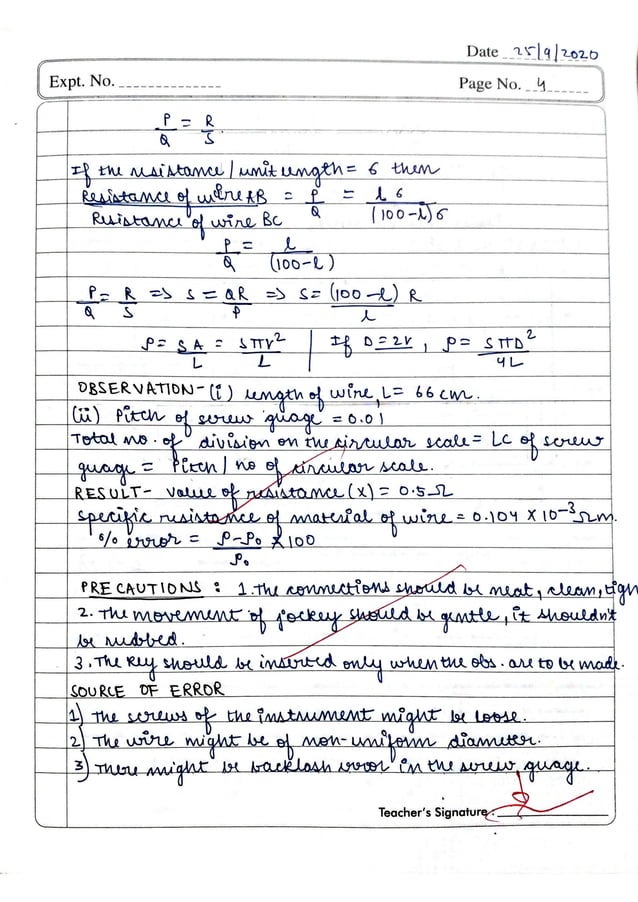 Date 25/9/2020
Expt. No.
Page No. 4
P/Q = R/S.
If the resistance / unit length = σ then
Resistance of wire AB = P/Q = lσ/(100-l)σ
Resistance of wire BC
P/Q = l/(100-l)
P/Q = R/S => S = QR/P => S = (100-l)/l R
ρ = SA/L = Sπr²/L | If D = 2r, ρ = SπD²/4L
OBSERVATION- (i) length of wire, L = 66 cm.
(ii) Pitch of screw guage = 0.01
Total no. of division on the circular scale = LC of screw
guage = Pitch / no of circular scale.
RESULT- value of resistance (X) = 0.5Ω
Specific resistance of material of wire = 0.104 X 10⁻³ Ωm.
% error = ρ-ρ₀/ρ₀ X 100
PRECAUTIONS : 1. The connections should be neat, clean, tigh
2. The movement of jockey should be gentle, it shouldn't
be rubbed.
3. The key should be inserted only when the obs. are to be made.
SOURCE OF ERROR
1) The screws of the instrument might be loose.
2) The wire might be of non-uniform diameter.
3) There might be backlash error in the screw guage.
Teacher's Signature :